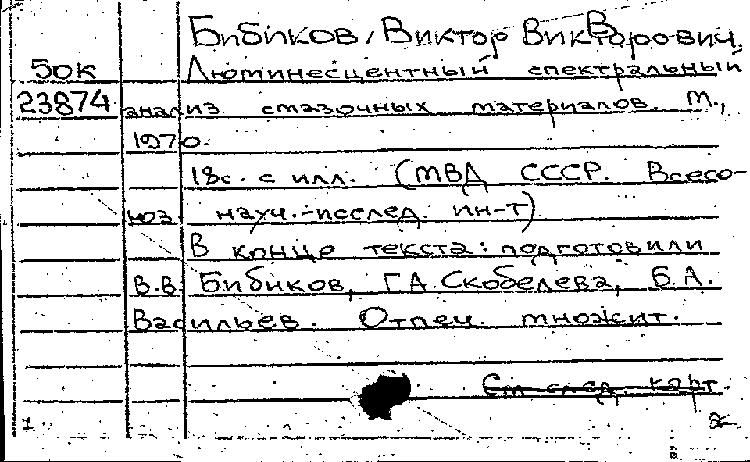 Бибиков, Виктор Викторович,
50к Люминесцентный спектральный
23874 анализ смазочных материалов. М.,
1970.
18с. с илл. (МВД СССР. Всесо-
юз. науч.-исслед. ин-т)
В конце текста: подготовили
В.В. Бибиков, Г.А. Скобелева, Б.А.
Васильев. Отпеч. множит.
См след. карт.
1 2